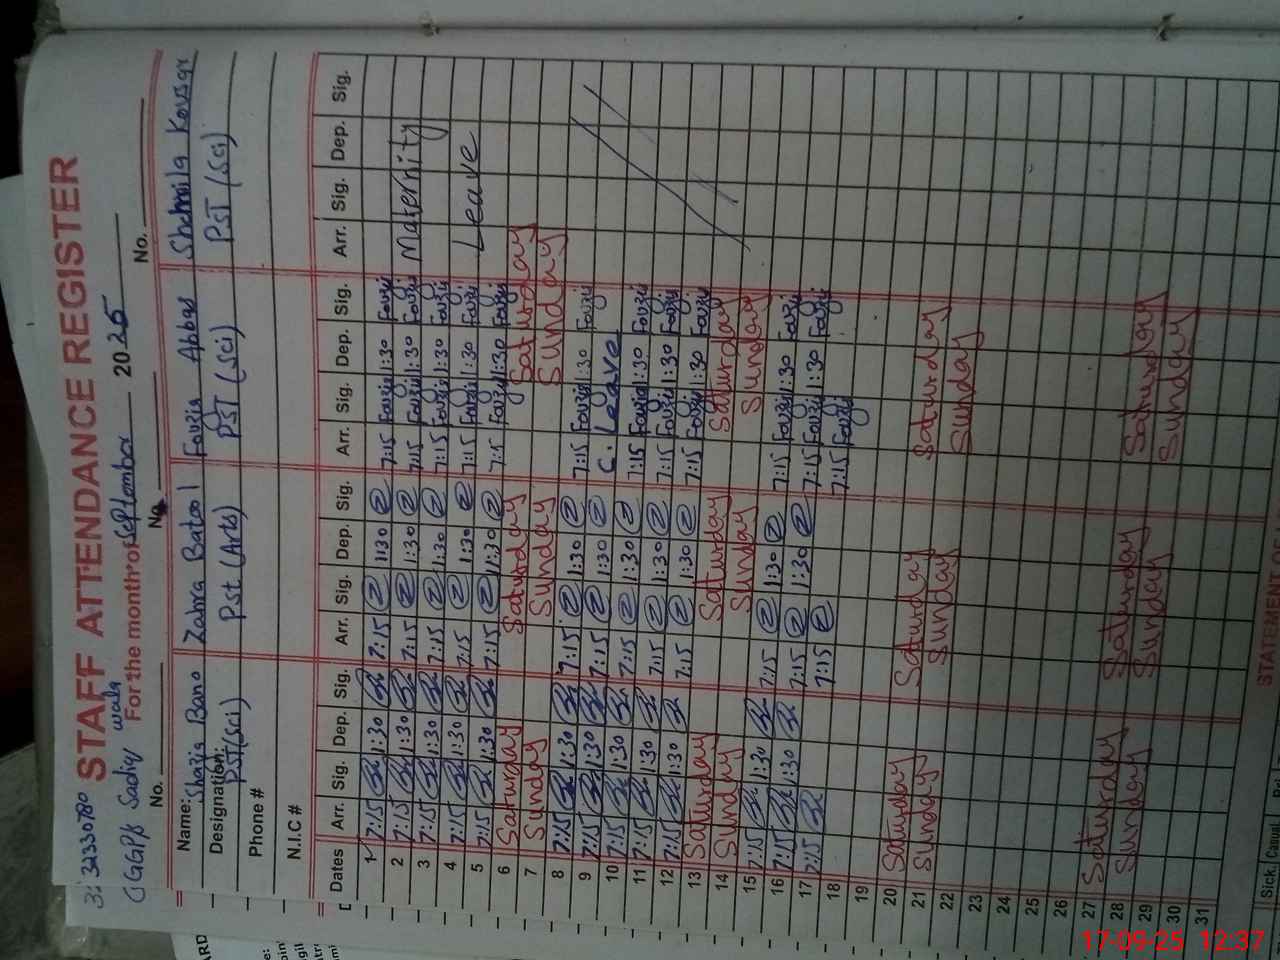 32330780 STAFF ATTENDANCE REGISTER
GGP/s Sadiq wala For the month of September 2025
No. No. No.
Name: Shazia Bano Zahra Batool Fouzia Abbas Shemila Kousar
Designation: PST(sci) Pst (Arts) PST (Sci) PST (Sci)
Phone #
N.I.C #
Dates Arr. Sig. Dep. Sig. Arr. Sig. Dep. Sig. Arr. Sig. Dep. Sig. Arr. Sig. Dep. Sig.
1 7:15 1:30 7:15 1:30 7:15 Fouzi 1:30 Fouzi
2 7:15 1:30 7:15 1:30 7:15 Fouzi 1:30 Fouzi Maternity
3 7:15 1:30 7:15 1:30 7:15 Fouzi 1:30 Fouzi
4 7:15 1:30 7:15 1:30 7:15 Fouzi 1:30 Fouzi Leave
5 7:15 1:30 7:15 1:30 7:15 Fouzi 1:30 Fouzi
6 Saturday Saturday Saturday
7 Sunday Sunday Sunday
8 7:15 1:30 7:15 1:30 7:15 Fouzi 1:30 Fouzi
9 7:15 1:30 7:15 1:30 C. Leave
10 7:15 1:30 7:15 1:30 7:15 Fouzi 1:30 Fouzi
11 7:15 1:30 7:15 1:30 7:15 Fouzi 1:30 Fouzi
12 7:15 1:30 7:15 1:30 7:15 Fouzi 1:30 Fouzi
13 Saturday Saturday Saturday
14 Sunday Sunday Sunday
15 7:15 1:30 7:15 1:30 7:15 Fouzi 1:30 Fouzi
16 7:15 1:30 7:15 1:30 7:15 Fouzi 1:30 Fouzi
17 7:15 7:15 7:15 Fouzi
18
19
20 Saturday Saturday Saturday
21 Sunday Sunday Sunday
22
23
24
25
26
27 Saturday Saturday Saturday
28 Sunday Sunday Sunday
29
30
31
STATEMENT OF
Sick. Casual
17-09-25 12:37